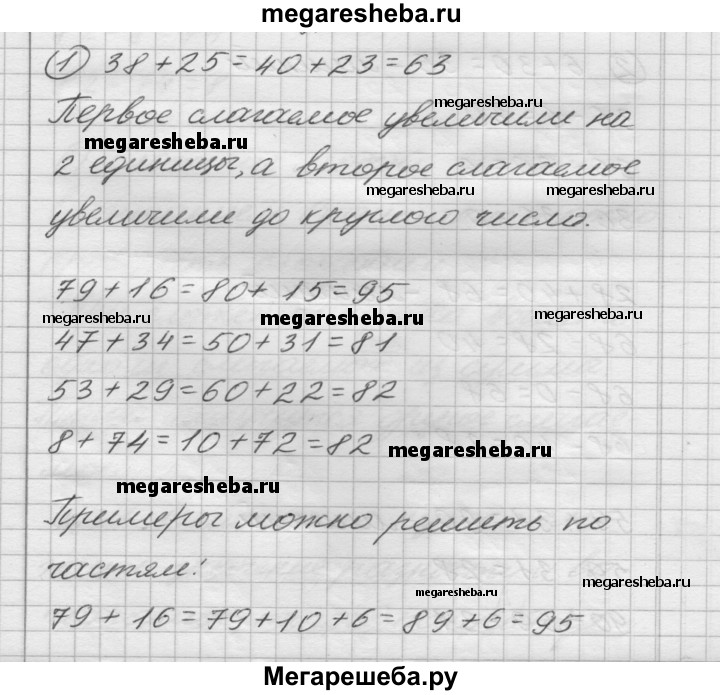 megaresheba.ru
① 38+25=40+23=63
Первое слагаемое увеличили на
megaresheba.ru
megaresheba.ru
2 единицы, а второе слагаемое
megaresheba.ru
megaresheba.ru
увеличили до круглого числа.
79+16=80+15=95
megaresheba.ru
megaresheba.ru
megaresheba.ru
47+34=50+31=81
53+29=60+22=82
8+74=10+72=82
megaresheba.ru
megaresheba.ru
Примеры можно решить по
частям:
megaresheba.ru
megaresheba.ru
79+16=79+10+6=89+6=95
Мегарешеба.ру